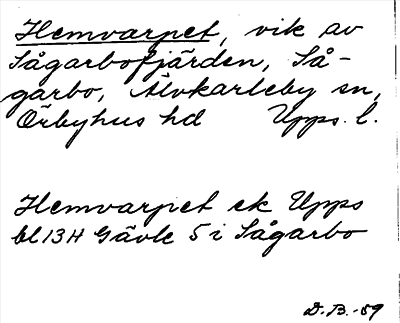 Hemvarpet, vik av
Sågarbofjärden, Så-
garbo, Älvkarleby sn,
Örbyhus hd Upps. l.
Hemvarpet ek Upps
bl 13H Gävle 5 i Sågarbo
D.B.-59